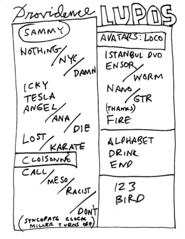 Providence
SAMMY
NOTHING/
NYC/
DAMN
ICKY
TESLA
ANGEL/
ANA/
DIE
LOST/
KARATE
CLOISONNE
CALL/
MESO/
RACIST/
DON'T
(SYNCOPATE CLOCK
MILLER TURNS OFF)
LUPOS
AVATARS: LOCO
ISTANBUL DUO
ENSOR/
WORM
NANO/
GTR
(THANKS)
FIRE
ALPHABET
DRINK
END
123
BIRD